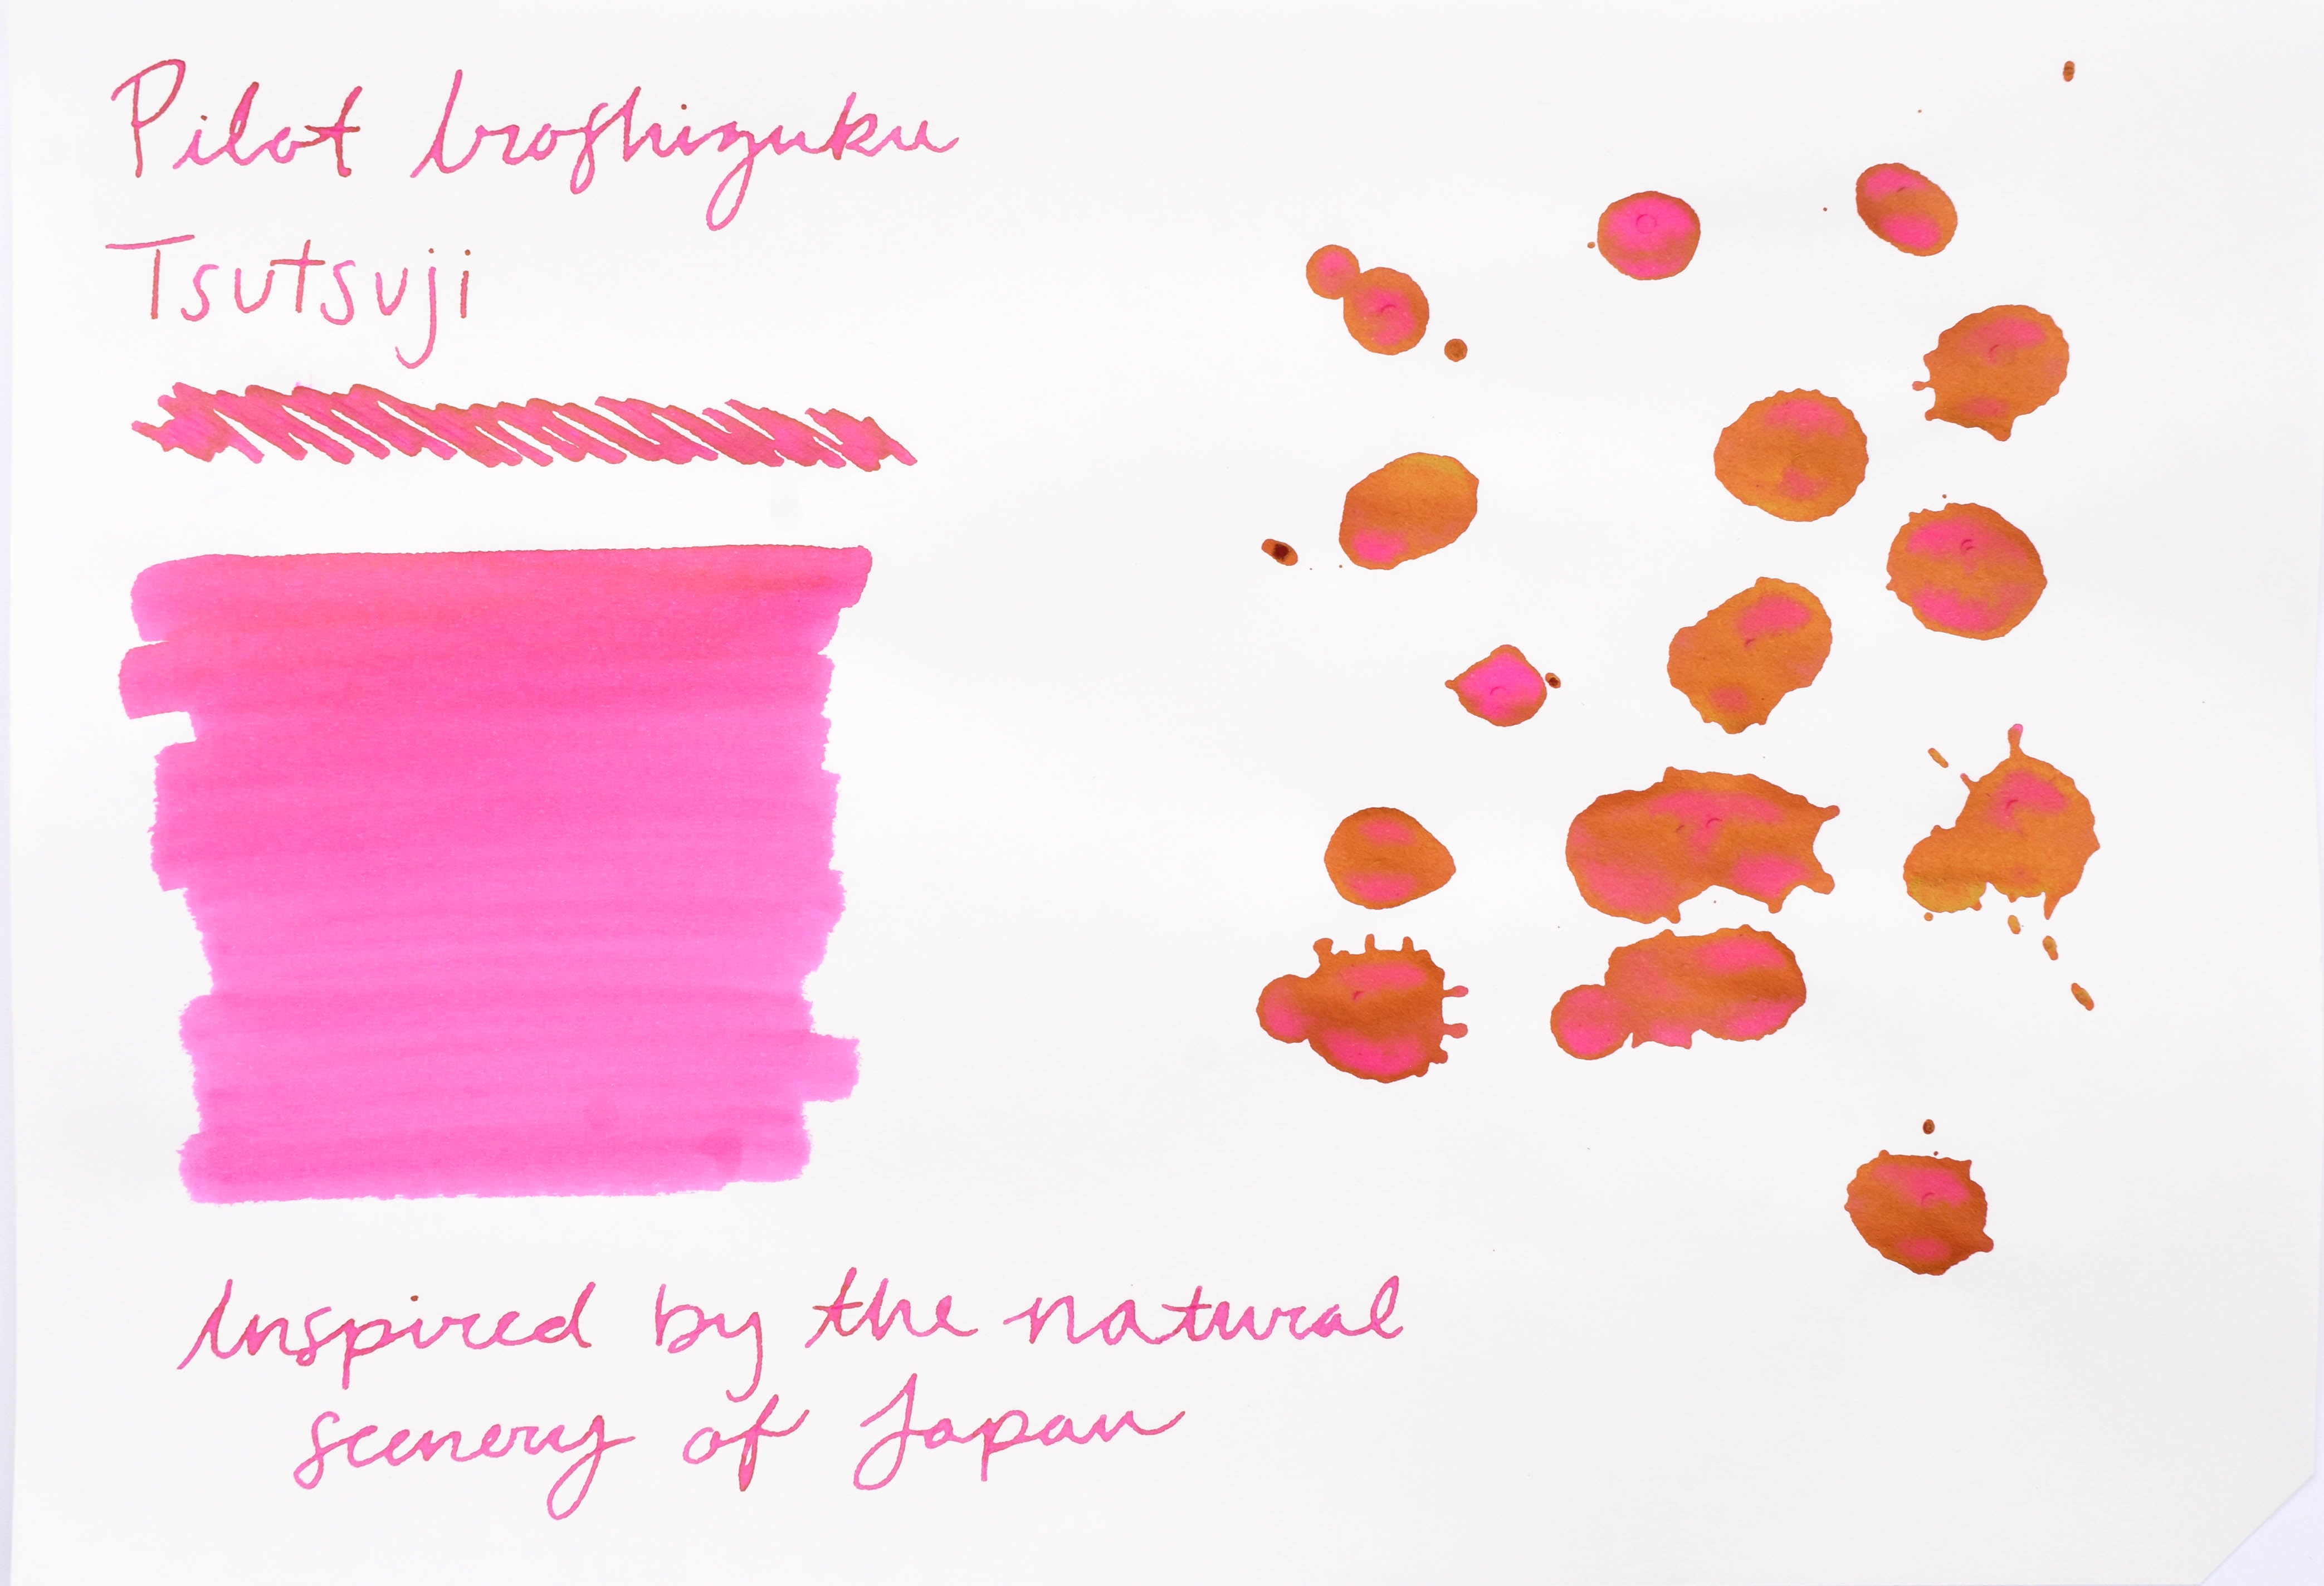 Pilot Iroshizuku
Tsutsuji
Inspired by the natural
scenery of Japan